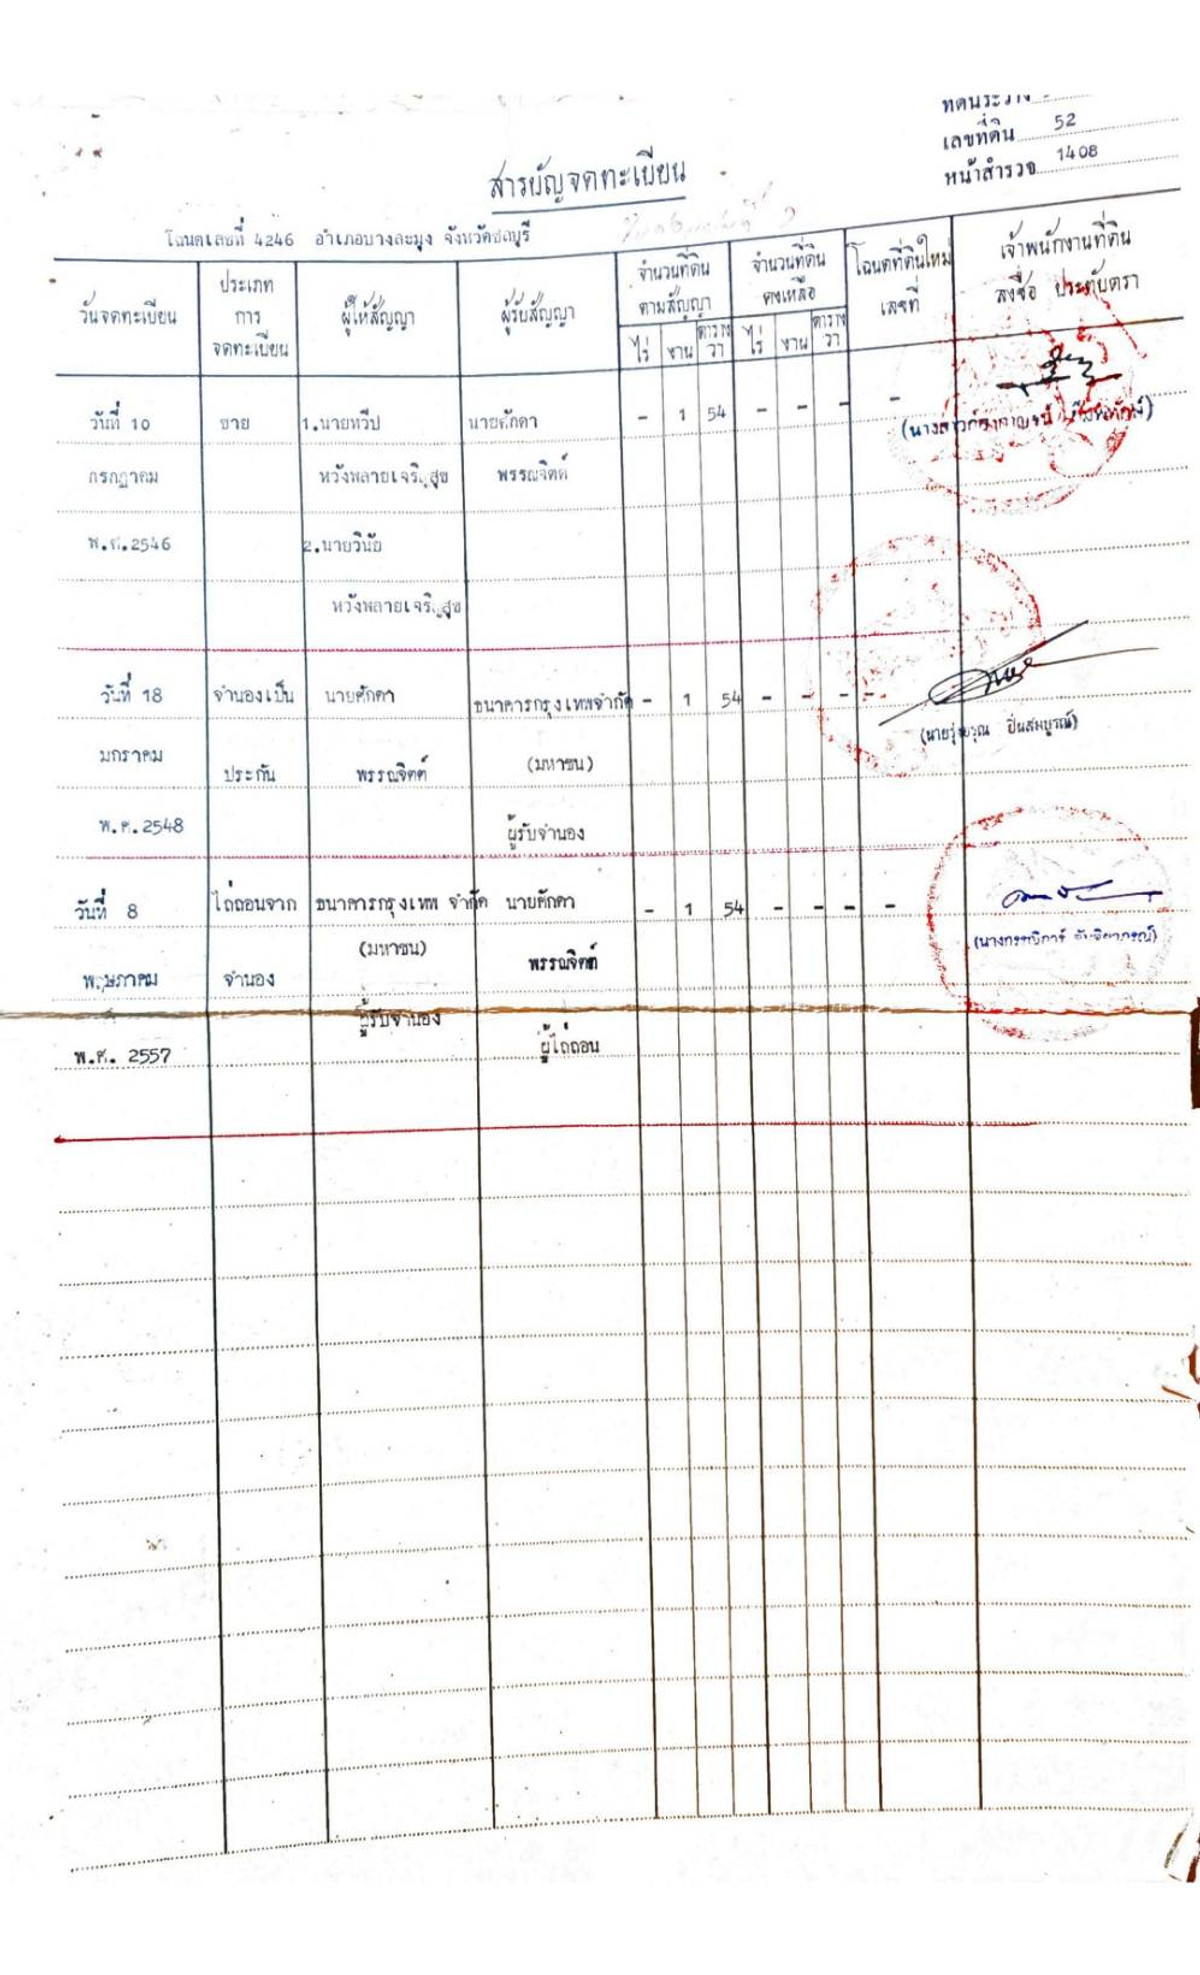 เลขที่ดิน 52
หน้าสำรวจ 1408
สารบัญจดทะเบียน
โฉนดเลขที่ 4246 อำเภอบางละมุง จังหวัดชลบุรี
วันจดทะเบียน ประเภทการจดทะเบียน ผู้ให้สัญญา ผู้รับสัญญา จำนวนที่ดินตามสัญญา จำนวนที่ดินคงเหลือ โฉนดที่ดินใหม่เลขที่ เจ้าพนักงานที่ดินลงชื่อ ประทับตรา
ไร่ งาน ตารางวา ไร่ งาน ตารางวา
วันที่ 10 ขาย 1.นายทวีป นายศักดา - 1 54 - - - -
กรกฎาคม หวังพลายเจริญสุข พรรณจิตต์
พ.ศ.2546 2.นายวินัย
หวังพลายเจริญสุข
วันที่ 18 จำนองเป็น นายศักดา ธนาคารกรุงเทพจำกัด - 1 54 - - - -
มกราคม ประกัน พรรณจิตต์ (มหาชน)
พ.ศ.2548 ผู้รับจำนอง
(นายรุ่งอรุณ ปิ่นสมบูรณ์)
วันที่ 8 ไถ่ถอนจาก ธนาคารกรุงเทพ จำกัด นายศักดา - 1 54 - - - -
พฤษภาคม จำนอง (มหาชน) พรรณจิตต์
พ.ศ. 2557 ผู้รับจำนอง ผู้ไถ่ถอน